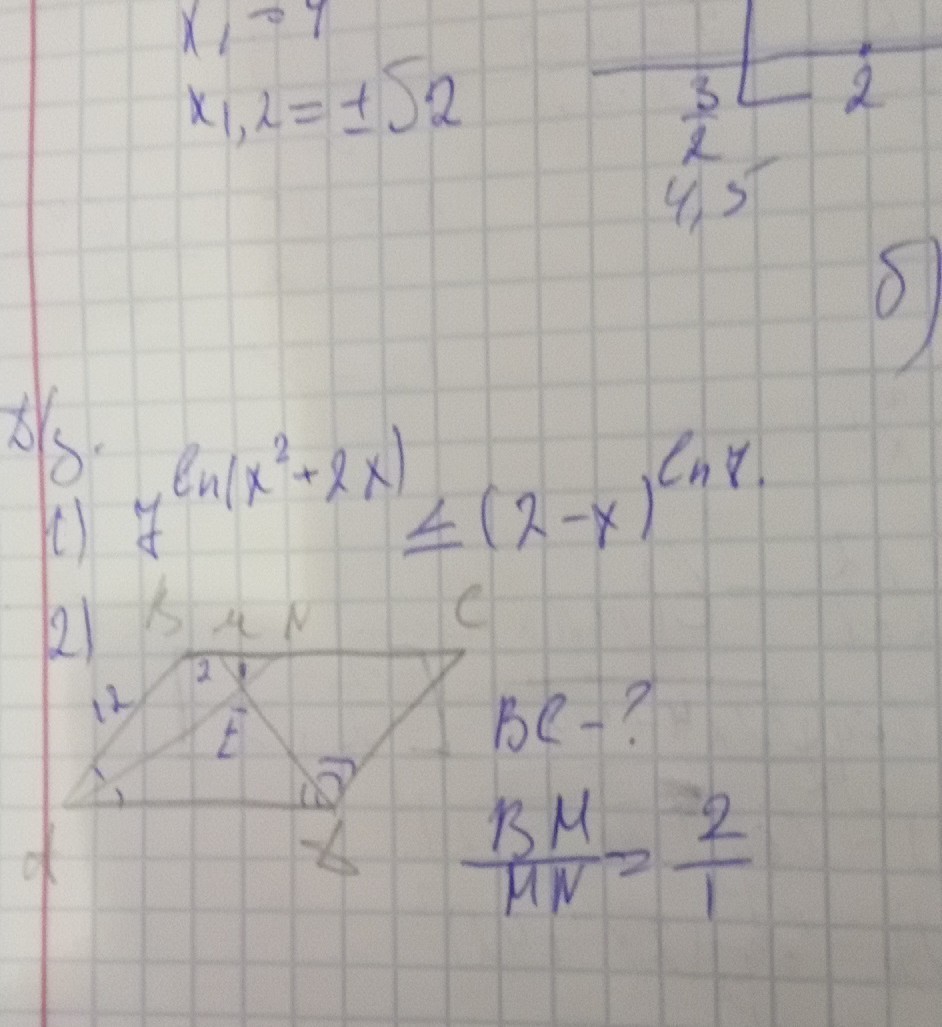 x₁,₂ = ±√2
3/2
2
4,5
б)
Д/з.
1) 7^(ln(x²+2x)) ≤ (2-x)^(ln 7).
2)
B M N C
12
2
E
BC - ?
BM/MN = 2/1